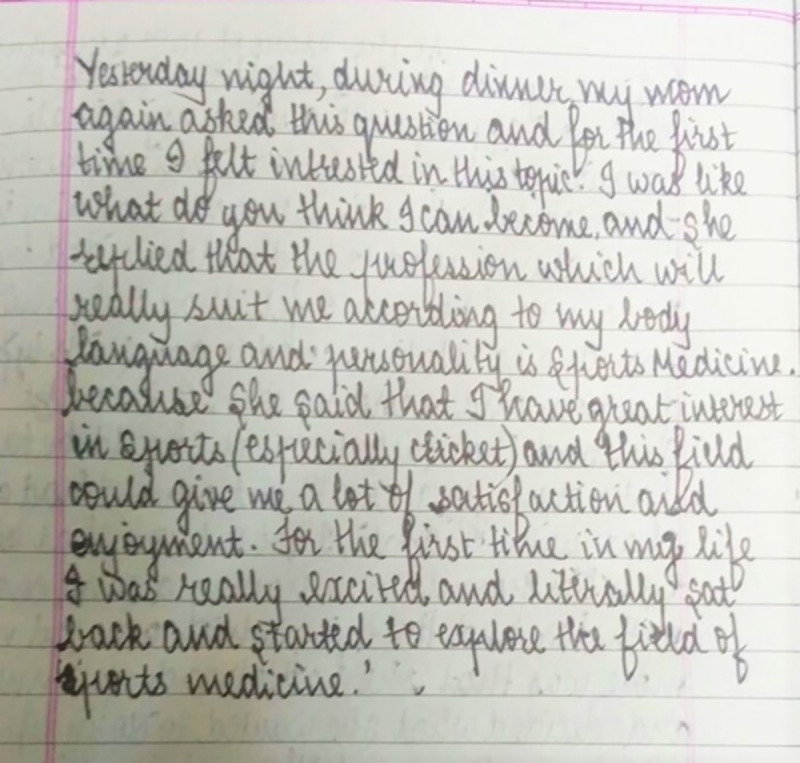 Yesterday night, during dinner, my mom
again asked this question and for the first
time I felt intrested in this topic. I was like
what do you think I can become, and she
replied that the profession which will
really suit me according to my body
language and personality is Sports Medicine.
because She said that I have great interest
in Sports (especially cricket) and this field
could give me a lot of satisfaction and
enjoyment. For the first time in my life
I was really excited and literally sat
back and started to explore the field of
sports medicine.'